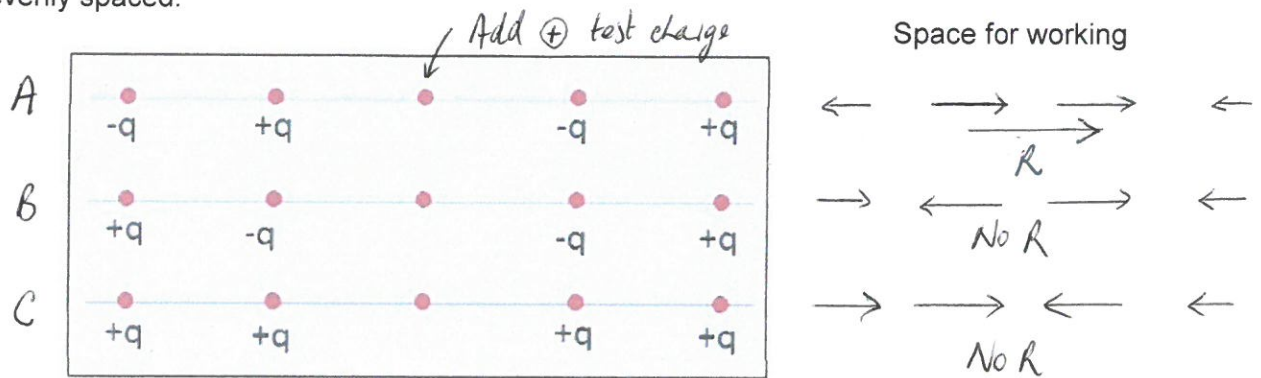 evenly spaced.
Add ⊕ test charge
Space for working
A
-q +q -q +q
R
B
+q -q -q +q
No R
C
+q +q +q +q
No R